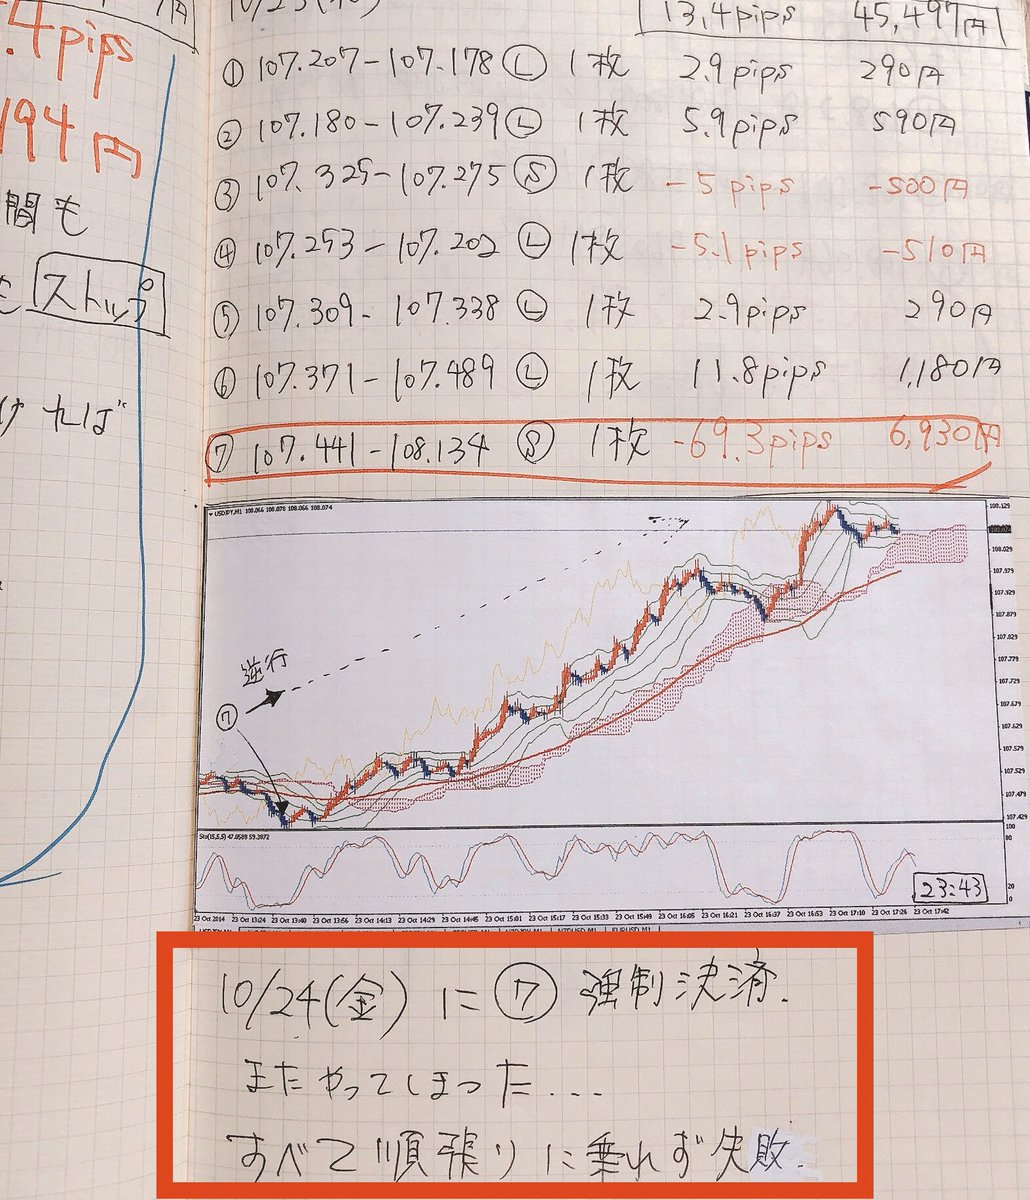 .4pips
194円
間も
を ストップ
ければ
13.4pips 45,497円
① 107.207-107.178 Ⓛ 1枚 2.9pips 290円
② 107.180-107.239 Ⓛ 1枚 5.9pips 590円
③ 107.325-107.275 Ⓢ 1枚 -5pips -500円
④ 107.253-107.202 Ⓛ 1枚 -5.1pips -510円
⑤ 107.309-107.338 Ⓛ 1枚 2.9pips 290円
⑥ 107.371-107.489 Ⓛ 1枚 11.8pips 1,180円
⑦ 107.441-108.134 Ⓢ 1枚 -69.3pips 6,930円
USDJPY,M1 108.066 108.078 108.066 108.074
108.129
108.029
107.979
107.929
107.879
107.829
107.779
107.729
107.679
107.629
107.579
107.529
107.479
107.429
逆行
⑦
Sto(15,5,5) 47.0588 59.3872
100
80
20
0
23:43
23 Oct 2014 23 Oct 13:24 23 Oct 13:40 23 Oct 13:56 23 Oct 14:13 23 Oct 14:29 23 Oct 14:45 23 Oct 15:01 23 Oct 15:17 23 Oct 15:33 23 Oct 15:49 23 Oct 16:05 23 Oct 16:21 23 Oct 16:37 23 Oct 16:53 23 Oct 17:10 23 Oct 17:26 23 Oct 17:42
10/24(金)に⑦強制決済.
またやってしまった....
すべて順張りに乗れず失敗.